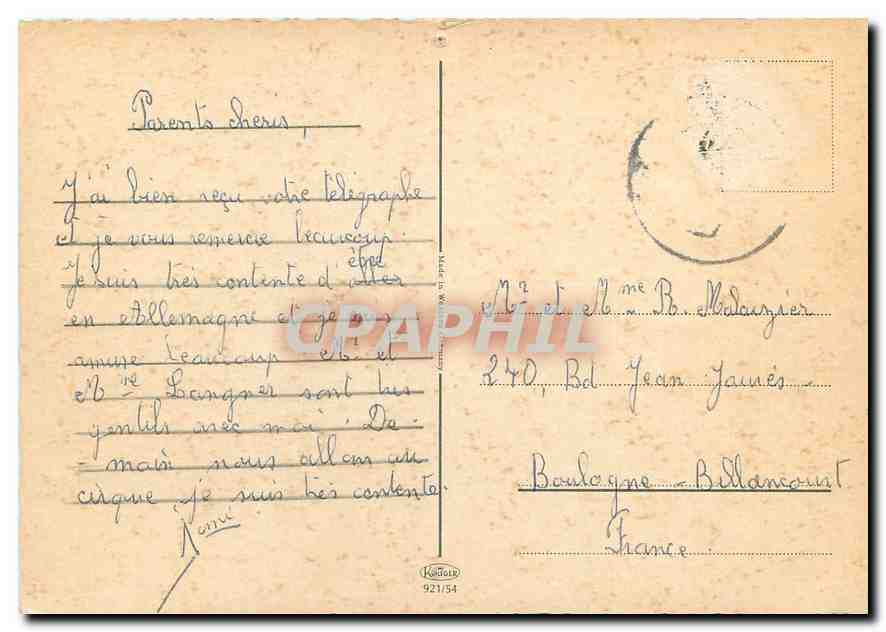 Parents cheris,
J'ai bien reçu votre télégraphe
et je vous remercie beaucoup.
Je suis très contente d'être
en Allemagne et je m'y
amuse beaucoup Mr et
Mme Langner sont très
gentils avec moi. De-
-main nous allons au
cirque je suis très contente.
Made in Western Germany
KRÜGER
921/54
Mr et Mme R. Malauzier
240, Bd Jean Jaurés -
Boulogne - Billancourt
France.
CPAPHIL